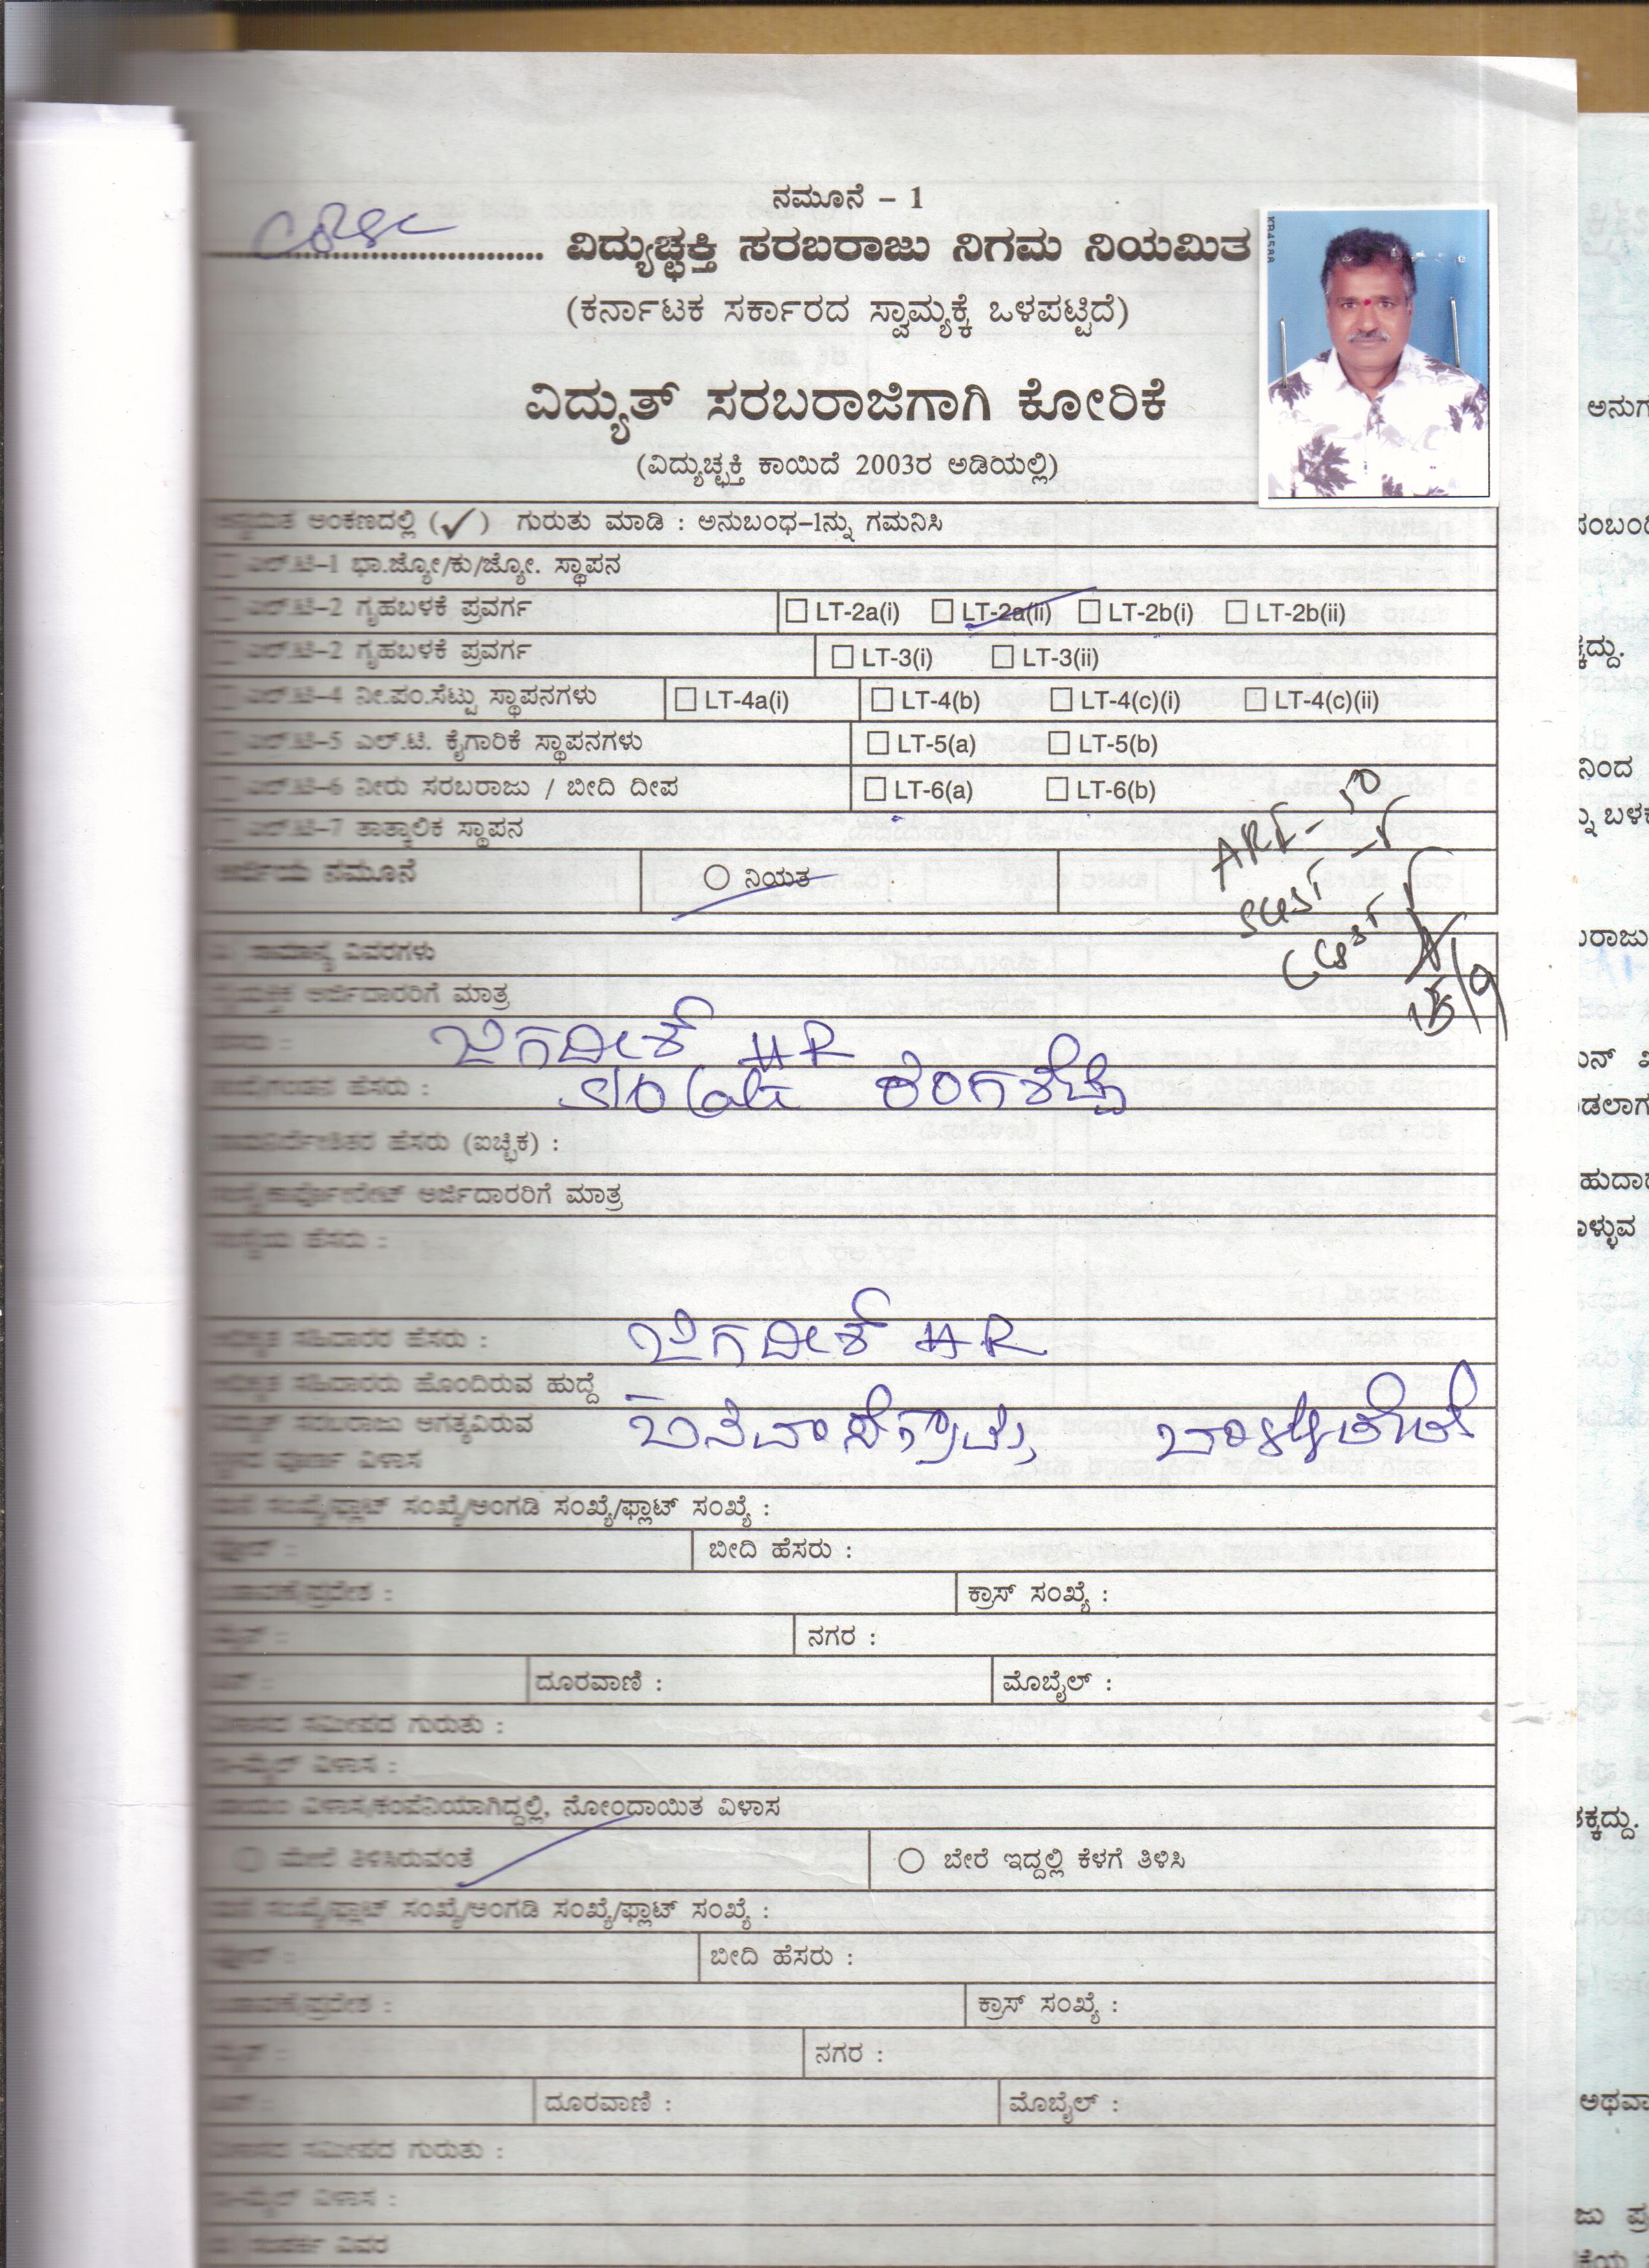 ನಮೂನೆ – 1
........................ ವಿದ್ಯುಚ್ಛಕ್ತಿ ಸರಬರಾಜು ನಿಗಮ ನಿಯಮಿತ
(ಕರ್ನಾಟಕ ಸರ್ಕಾರದ ಸ್ವಾಮ್ಯಕ್ಕೆ ಒಳಪಟ್ಟಿದೆ)
ವಿದ್ಯುತ್ ಸರಬರಾಜಿಗಾಗಿ ಕೋರಿಕೆ
(ವಿದ್ಯುಚ್ಛಕ್ತಿ ಕಾಯಿದೆ 2003ರ ಅಡಿಯಲ್ಲಿ)
ಅಂಕಣದಲ್ಲಿ (✓) ಗುರುತು ಮಾಡಿ : ಅನುಬಂಧ–1ನ್ನು ಗಮನಿಸಿ
ಎಲ್.ಟಿ–1 ಭಾ.ಜ್ಯೋ/ಕು/ಜ್ಯೋ. ಸ್ಥಾಪನ
ಎಲ್.ಟಿ–2 ಗೃಹಬಳಕೆ ಪ್ರವರ್ಗ LT-2a(i) LT-2a(ii) LT-2b(i) LT-2b(ii)
ಎಲ್.ಟಿ–2 ಗೃಹಬಳಕೆ ಪ್ರವರ್ಗ LT-3(i) LT-3(ii)
ಎಲ್.ಟಿ–4 ನೀ.ಪಂ.ಸೆಟ್ಟು ಸ್ಥಾಪನಗಳು LT-4a(i) LT-4(b) LT-4(c)(i) LT-4(c)(ii)
ಎಲ್.ಟಿ–5 ಎಲ್.ಟಿ. ಕೈಗಾರಿಕೆ ಸ್ಥಾಪನಗಳು LT-5(a) LT-5(b)
ಎಲ್.ಟಿ–6 ನೀರು ಸರಬರಾಜು / ಬೀದಿ ದೀಪ LT-6(a) LT-6(b)
ಎಲ್.ಟಿ–7 ತಾತ್ಕಾಲಿಕ ಸ್ಥಾಪನ
ಅರ್ಜಿಯ ನಮೂನೆ ನಿಯತ
ಸಾಮಾನ್ಯ ವಿವರಗಳು
ಅರ್ಜಿದಾರರಿಗೆ ಮಾತ್ರ
ಹೆಸರು : ಜಗದೀಶ್ HR
ತಂದೆ/ಗಂಡನ ಹೆಸರು : S/o Late ಕೆಂಗಶೆಟ್ಟಿ
ನಾಮನಿರ್ದೇಶಿತರ ಹೆಸರು (ಐಚ್ಛಿಕ) :
ಅರ್ಜಿದಾರರಿಗೆ ಮಾತ್ರ
ಸಂಸ್ಥೆಯ ಹೆಸರು :
ಅಧಿಕೃತ ಸಹಿದಾರರ ಹೆಸರು : ಜಗದೀಶ್ HR
ಅಧಿಕೃತ ಸಹಿದಾರರು ಹೊಂದಿರುವ ಹುದ್ದೆ
ವಿದ್ಯುತ್ ಸರಬರಾಜು ಅಗತ್ಯವಿರುವ
ಸ್ಥಳದ ಪೂರ್ಣ ವಿಳಾಸ
ಮನೆ ಸಂಖ್ಯೆ/ಫ್ಲಾಟ್ ಸಂಖ್ಯೆ/ಅಂಗಡಿ ಸಂಖ್ಯೆ/ಫ್ಲಾಟ್ ಸಂಖ್ಯೆ :
ಬೀದಿ ಹೆಸರು :
ಬಡಾವಣೆ/ಪ್ರದೇಶ : ಕ್ರಾಸ್ ಸಂಖ್ಯೆ :
ನಗರ :
ದೂರವಾಣಿ : ಮೊಬೈಲ್ :
ವಿಳಾಸದ ಸಮೀಪದ ಗುರುತು :
ಇ-ಮೈಲ್ ವಿಳಾಸ :
ಖಾಯಂ ವಿಳಾಸ/ಕಂಪೆನಿಯಾಗಿದ್ದಲ್ಲಿ, ನೋಂದಾಯಿತ ವಿಳಾಸ
ಮೇಲೆ ತಿಳಿಸಿರುವಂತೆ ಬೇರೆ ಇದ್ದಲ್ಲಿ ಕೆಳಗೆ ತಿಳಿಸಿ
ಮನೆ ಸಂಖ್ಯೆ/ಫ್ಲಾಟ್ ಸಂಖ್ಯೆ/ಅಂಗಡಿ ಸಂಖ್ಯೆ/ಫ್ಲಾಟ್ ಸಂಖ್ಯೆ :
ಬೀದಿ ಹೆಸರು :
ಬಡಾವಣೆ/ಪ್ರದೇಶ : ಕ್ರಾಸ್ ಸಂಖ್ಯೆ :
ನಗರ :
ದೂರವಾಣಿ : ಮೊಬೈಲ್ :
ವಿಳಾಸದ ಸಮೀಪದ ಗುರುತು :
ಇ-ಮೈಲ್ ವಿಳಾಸ :
ಸಂಪರ್ಕ ವಿವರ